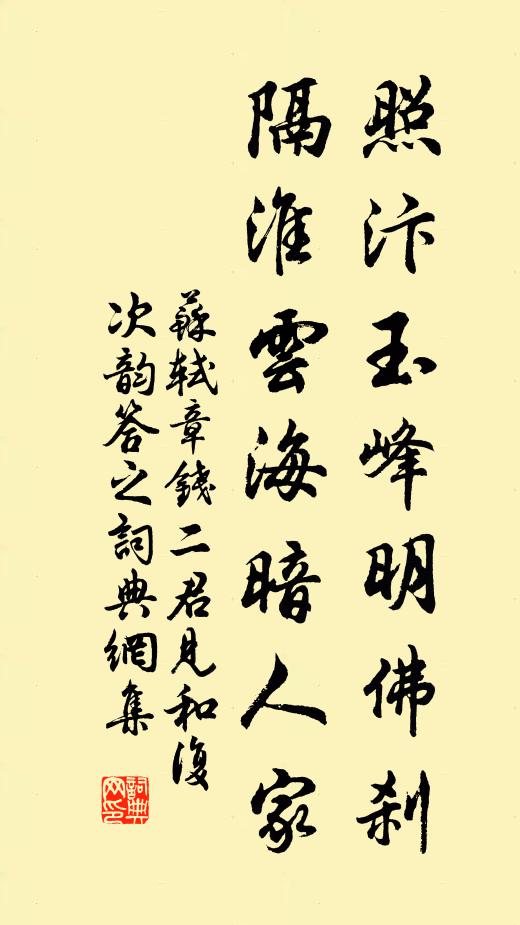 照汴玉峰明佛刹
隔淮雲海暗人家
蘇軾章錢二君見和復
次韵答之詞典網集
詞典